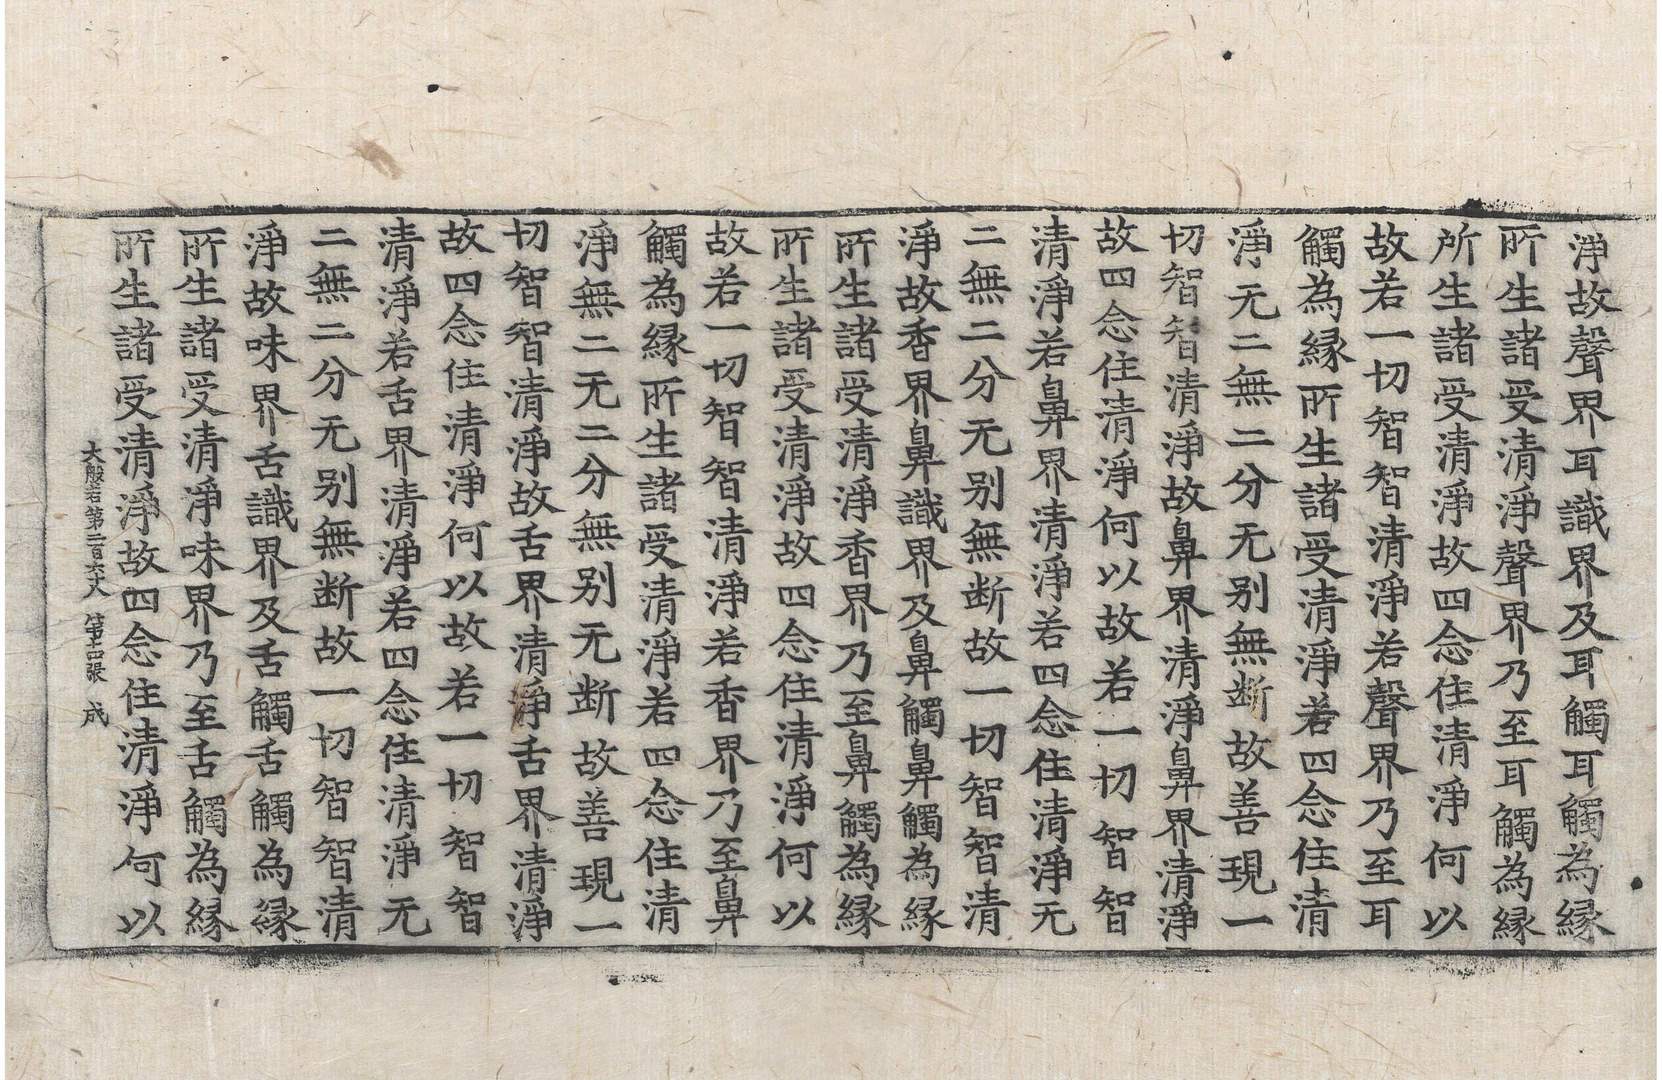 淨故聲界耳識界及耳觸耳觸為縁
所生諸受清淨聲界乃至耳觸為縁
所生諸受清淨故四念住清淨何以
故若一切智智清淨若聲界乃至耳
觸為縁所生諸受清淨若四念住清
淨无二無二分无别無断故善現一
切智智清淨故鼻界清淨鼻界清淨
故四念住清淨何以故若一切智智
清淨若鼻界清淨若四念住清淨无
二無二分无别無断故一切智智清
淨故香界鼻識界及鼻觸鼻觸為縁
所生諸受清淨香界乃至鼻觸為縁
所生諸受清淨故四念住清淨何以
故若一切智智清淨若香界乃至鼻
觸為縁所生諸受清淨若四念住清
淨無二无二分無别无断故善現一
切智智清淨故舌界清淨舌界清淨
故四念住清淨何以故若一切智智
清淨若舌界清淨若四念住清淨无
二無二分无别無断故一切智智清
淨故味界舌識界及舌觸舌觸為縁
所生諸受清淨味界乃至舌觸為縁
所生諸受清淨故四念住清淨何以
大般若第二百六 第十四張 成